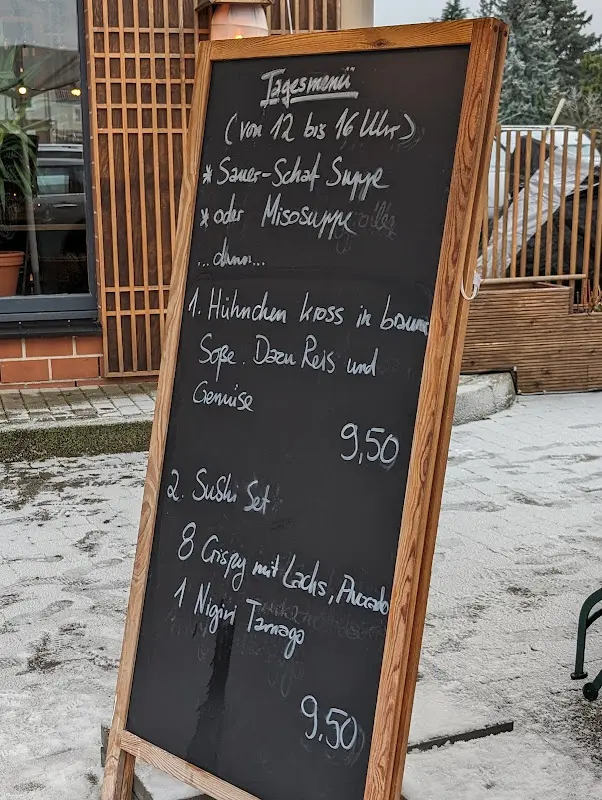 Tagesmenü
(von 12 bis 16 Uhr)
* Sauer-Schaf Suppe
* oder Misosuppe
... dann...
1. Hühnchen kross in braune
Soße. Dazu Reis und
Gemüse
9,50
2. Sushi Set
8 Crispy mit Lachs, Avocado
1 Nigiri Tamago
9,50